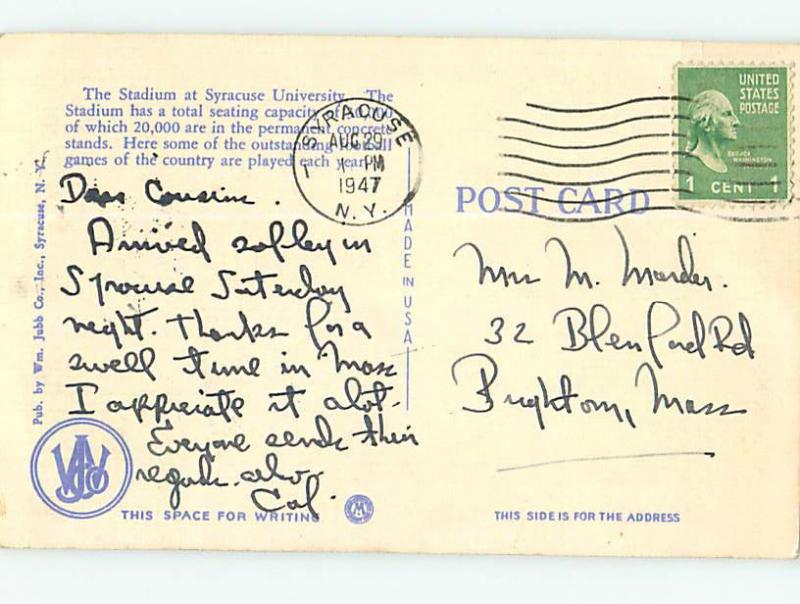 The Stadium at Syracuse University. The
Stadium has a total seating capacity of
of which 20,000 are in the permanent concrete
stands. Here some of the outstanding football
games of the country are played each year.
Dear Cousin.
Arrived safley in
Syracuse Saterday
night. Thanks for a
swell time in Mass
I appriciate it alot.
Everyone sends their
regards also.
Cal.
THIS SPACE FOR WRITING
Pub. by Wm. Jubb Co., Inc., Syracuse, N. Y.
MADE IN USA
SYRACUSE
AUG 29
PM
1947
N. Y.
UNITED
STATES
POSTAGE
GEORGE
WASHINGTON
1 CENT 1
POST CARD
Mrs M.
32 Blenford Rd
Brightom, Mass
THIS SIDE IS FOR THE ADDRESS